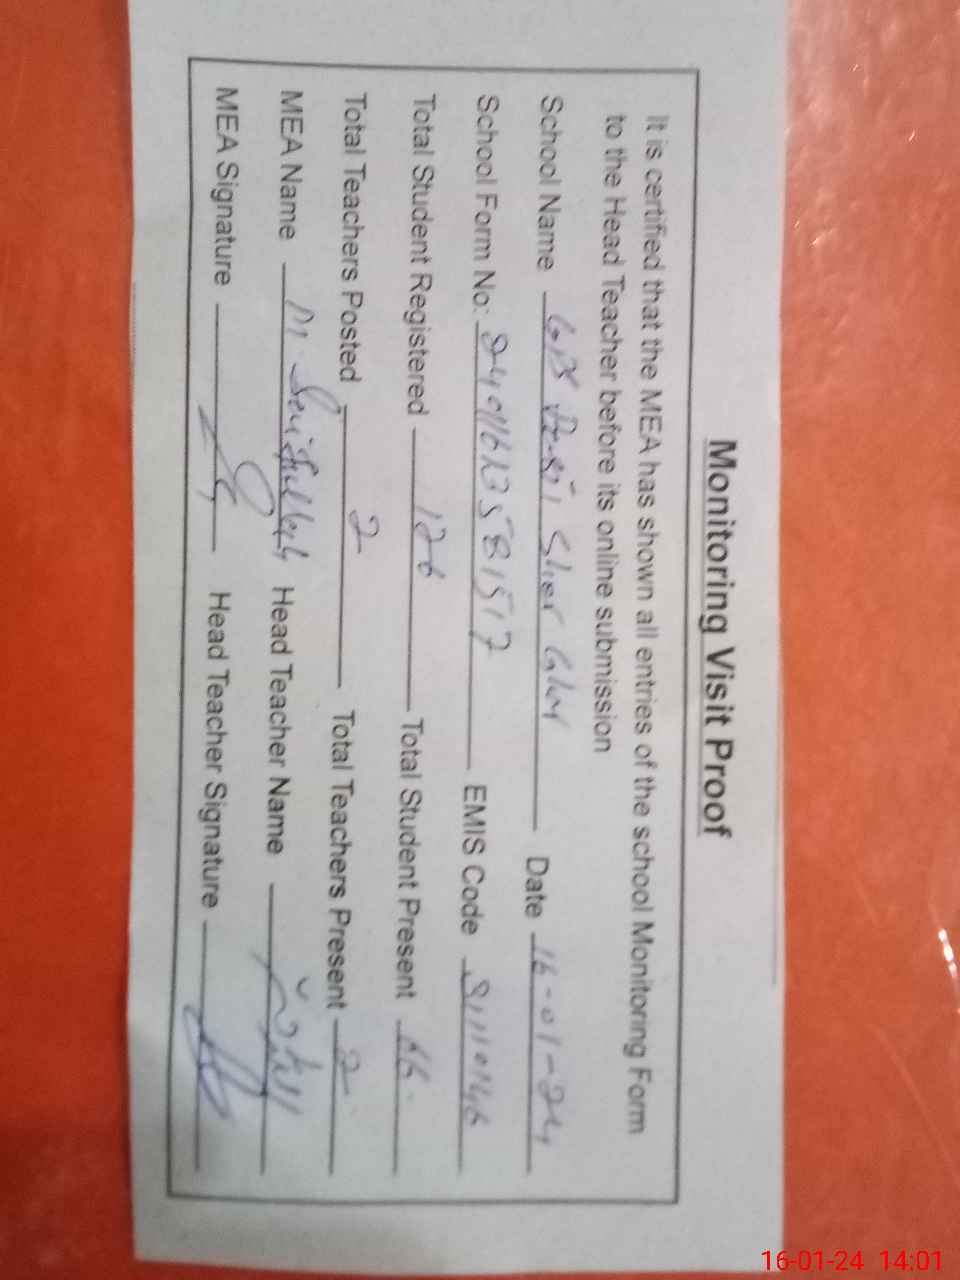 Monitoring Visit Proof
It is certified that the MEA has shown all entries of the school Monitoring Form
to the Head Teacher before its online submission
School Name Sher Date 16-01-24
School Form No: EMIS Code
Total Student Registered 126 Total Student Present 66
Total Teachers Posted 2 Total Teachers Present 2
MEA Name M. Head Teacher Name
MEA Signature Head Teacher Signature
16-01-24 14:01